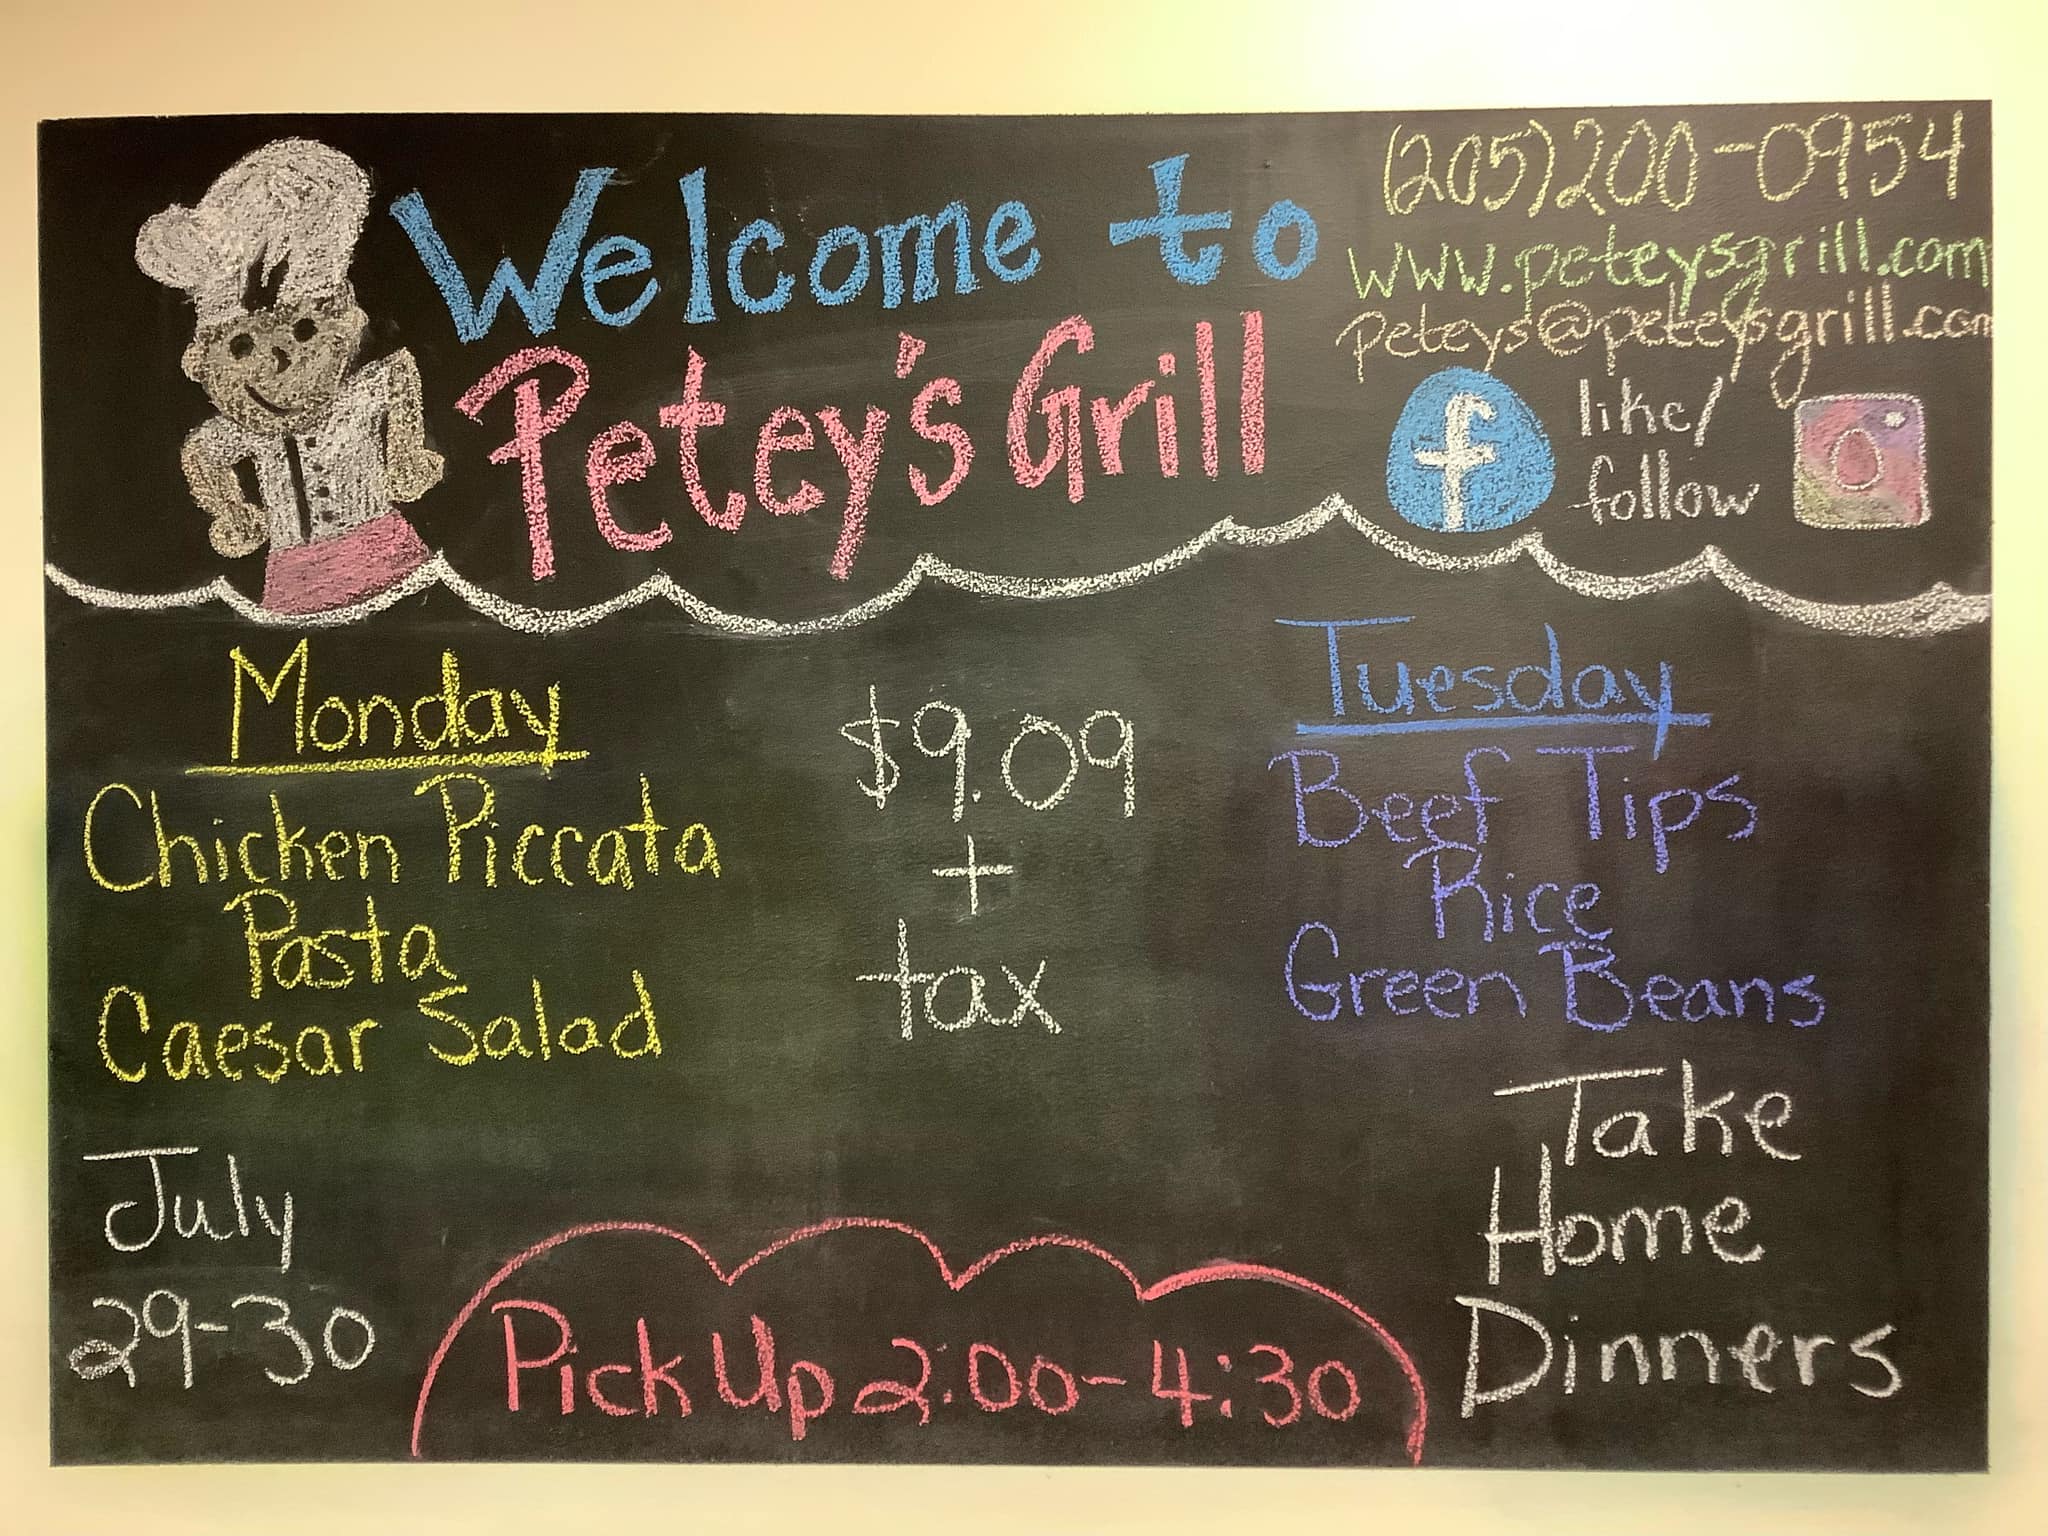 Welcome to
Petey's Grill
(205)200-0954
www.peteysgrill.com
Peteys@peteysgrill.com
f
like/
follow
Monday
Chicken Piccata
Pasta
Caesar Salad
$9.09
+
tax
Tuesday
Beef Tips
Rice
Green Beans
July
29-30
Pick Up 2:00-4:30
Take
Home
Dinners